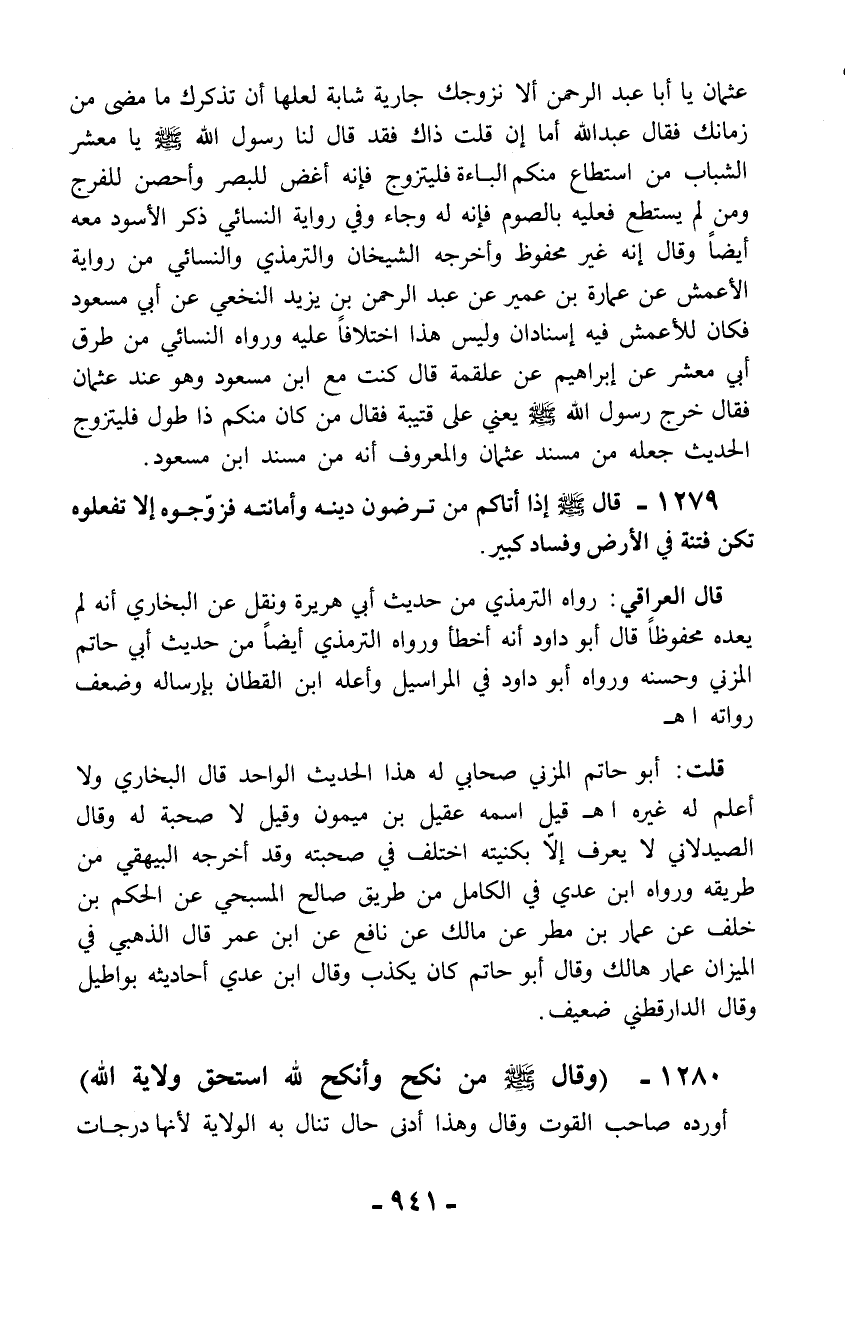 عثمان يا أبا عبد الرحمن ألا نزوجك جارية شابة لعلها أن تذكرك ما مضى من
زمانك فقال عبدالله أما إن قلت ذاك فقد قال لنا رسول الله ﷺ يا معشر
الشباب من استطاع منكم الباءة فليتزوج فإنه أغض للبصر وأحصن للفرج
ومن لم يستطع فعليه بالصوم فإنه له وجاء وفي رواية النسائي ذكر الأسود معه
أيضاً وقال إنه غير محفوظ وأخرجه الشيخان والترمذي والنسائي من رواية
الأعمش عن عمارة بن عمير عن عبد الرحمن بن يزيد النخعي عن أبي مسعود
فكان للأعمش فيه إسنادان وليس هذا اختلافاً عليه ورواه النسائي من طرق
أبي معشر عن إبراهيم عن علقمة قال كنت مع ابن مسعود وهو عند عثمان
فقال خرج رسول الله ﷺ يعني على قتيبة فقال من كان منكم ذا طول فليتزوج
الحديث جعله من مسند عثمان والمعروف أنه من مسند ابن مسعود.
١٢٧٩ - قال ﷺ إذا أتاكم من ترضون دينه وأمانته فزوّجوه إلا تفعلوه
تكن فتنة في الأرض وفساد كبير.
قال العراقي: رواه الترمذي من حديث أبي هريرة ونقل عن البخاري أنه لم
يعده محفوظاً قال أبو داود أنه أخطأ ورواه الترمذي أيضاً من حديث أبي حاتم
المزني وحسنه ورواه أبو داود في المراسيل وأعله ابن القطان بإرساله وضعف
رواته ا هـ
قلت: أبو حاتم المزني صحابي له هذا الحديث الواحد قال البخاري ولا
أعلم له غيره ا هـ قيل اسمه عقيل بن ميمون وقيل لا صحبة له وقال
الصيدلاني لا يعرف إلاّ بكنيته اختلف في صحبته وقد أخرجه البيهقي من
طريقه ورواه ابن عدي في الكامل من طريق صالح المسبحي عن الحكم بن
خلف عن عمار بن مطر عن مالك عن نافع عن ابن عمر قال الذهبي في
الميزان عمار هالك وقال أبو حاتم كان يكذب وقال ابن عدي أحاديثه بواطيل
وقال الدارقطني ضعيف.
١٢٨٠ - (وقال ﷺ من نكح وأنكح لله استحق ولاية الله)
أورده صاحب القوت وقال وهذا أدنى حال تنال به الولاية لأنها درجات
- ٩٤١ -